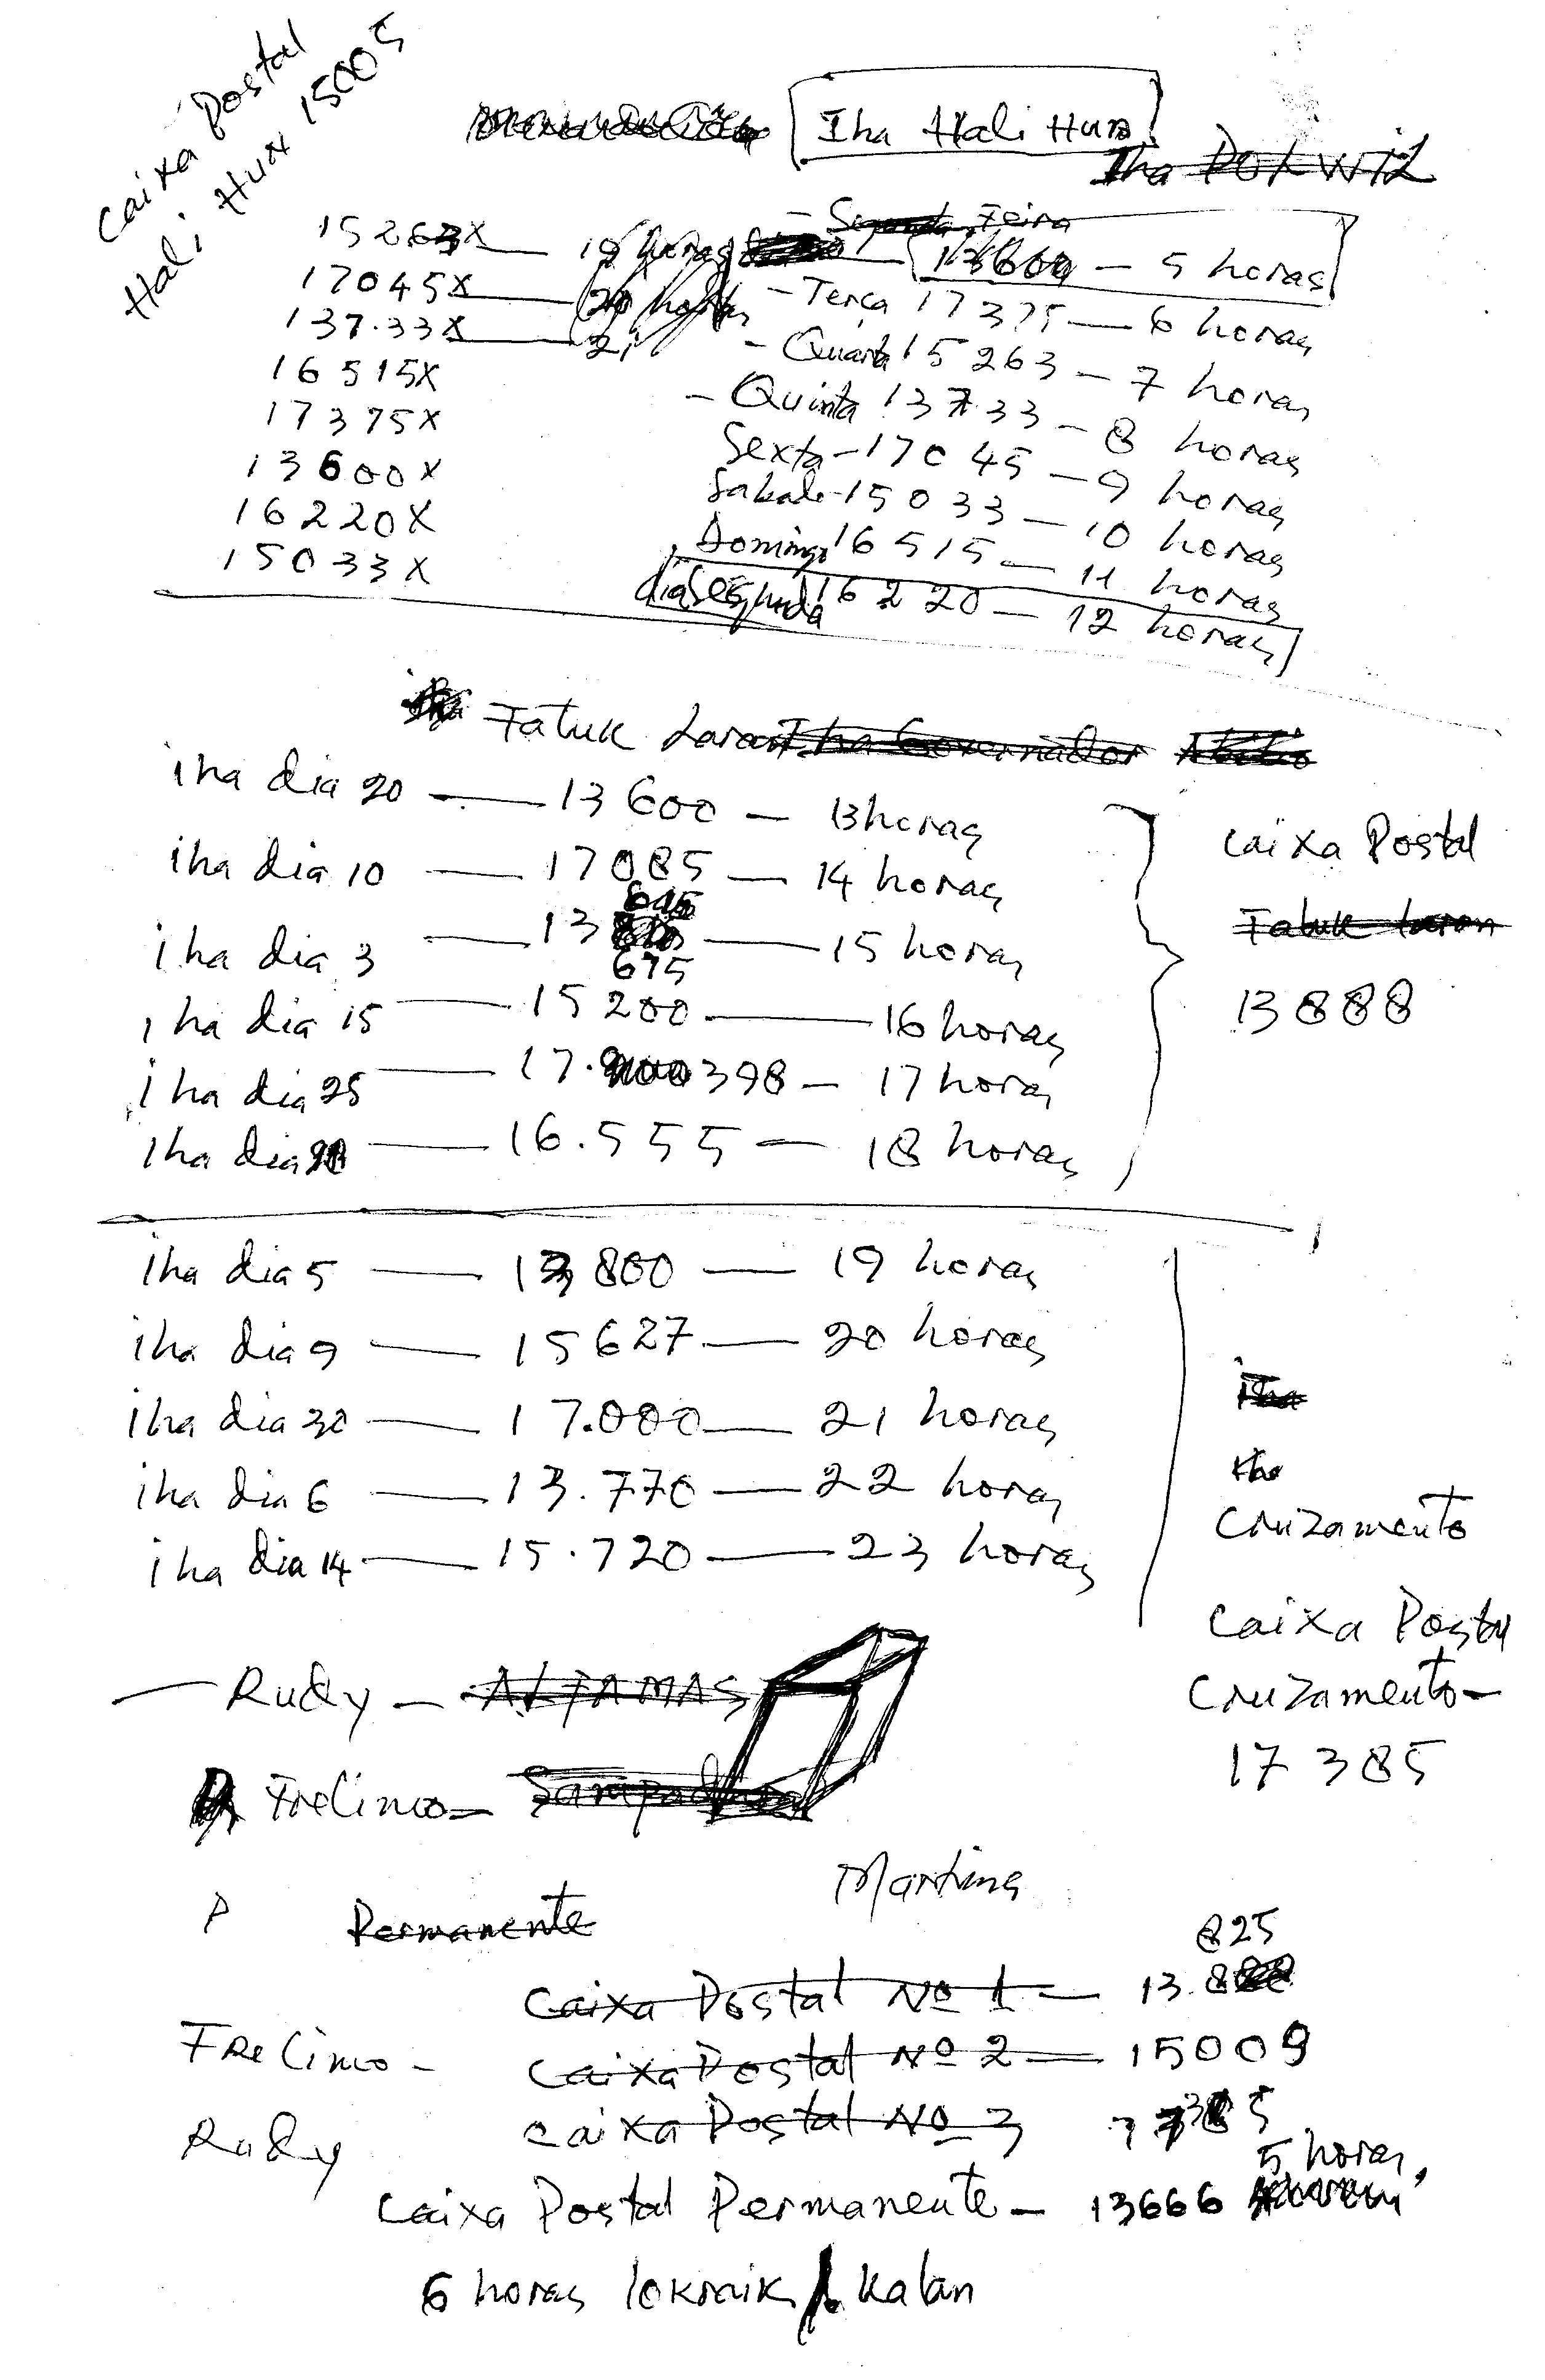 Caixa Postal
Hali Hun 15005
Iha Hali Hun
Iha POKWIL
15263X
17045X
137.33X
16515X
17375X
13600X
16220X
15033X
19 horas
20 horas
21
- Segunda Feira
13600 - 5 horas
- Terça 17375 - 6 horas
- Quarta 15263 - 7 horas
- Quinta 13733 - 8 horas
Sexta - 17045 - 9 horas
Sabado - 15033 - 10 horas
Domingo 16515 - 11 horas
dia Segunda 16220 - 12 horas
Fatuk Laran Iha Governador
iha dia 20 - 13600 - 13 horas
iha dia 10 - 17085 - 14 horas
iha dia 3 - 13 675 - 15 horas
iha dia 15 - 15200 - 16 horas
iha dia 25 - 17.398 - 17 horas
iha dia - 16.555 - 18 horas
Caixa Postal
Fatuk Laran
13888
iha dia 5 - 13800 - 19 horas
iha dia 9 - 15627 - 20 horas
iha dia 30 - 17.000 - 21 horas
iha dia 6 - 13.770 - 22 horas
iha dia 14 - 15.720 - 23 horas
Iha
Iha
Cruzamento
Caixa Postal
Cruzamento -
17385
- Rudy - ALFAMAS
Frelimo -
Martins
P Permanente
825
Caixa Postal Nº 1 - 13.
Frelimo - Caixa Postal Nº 2 - 15009
Rudy Caixa Postal Nº 3 17385
5 horas
Caixa Postal Permanente - 13666
6 horas lokraik kalan